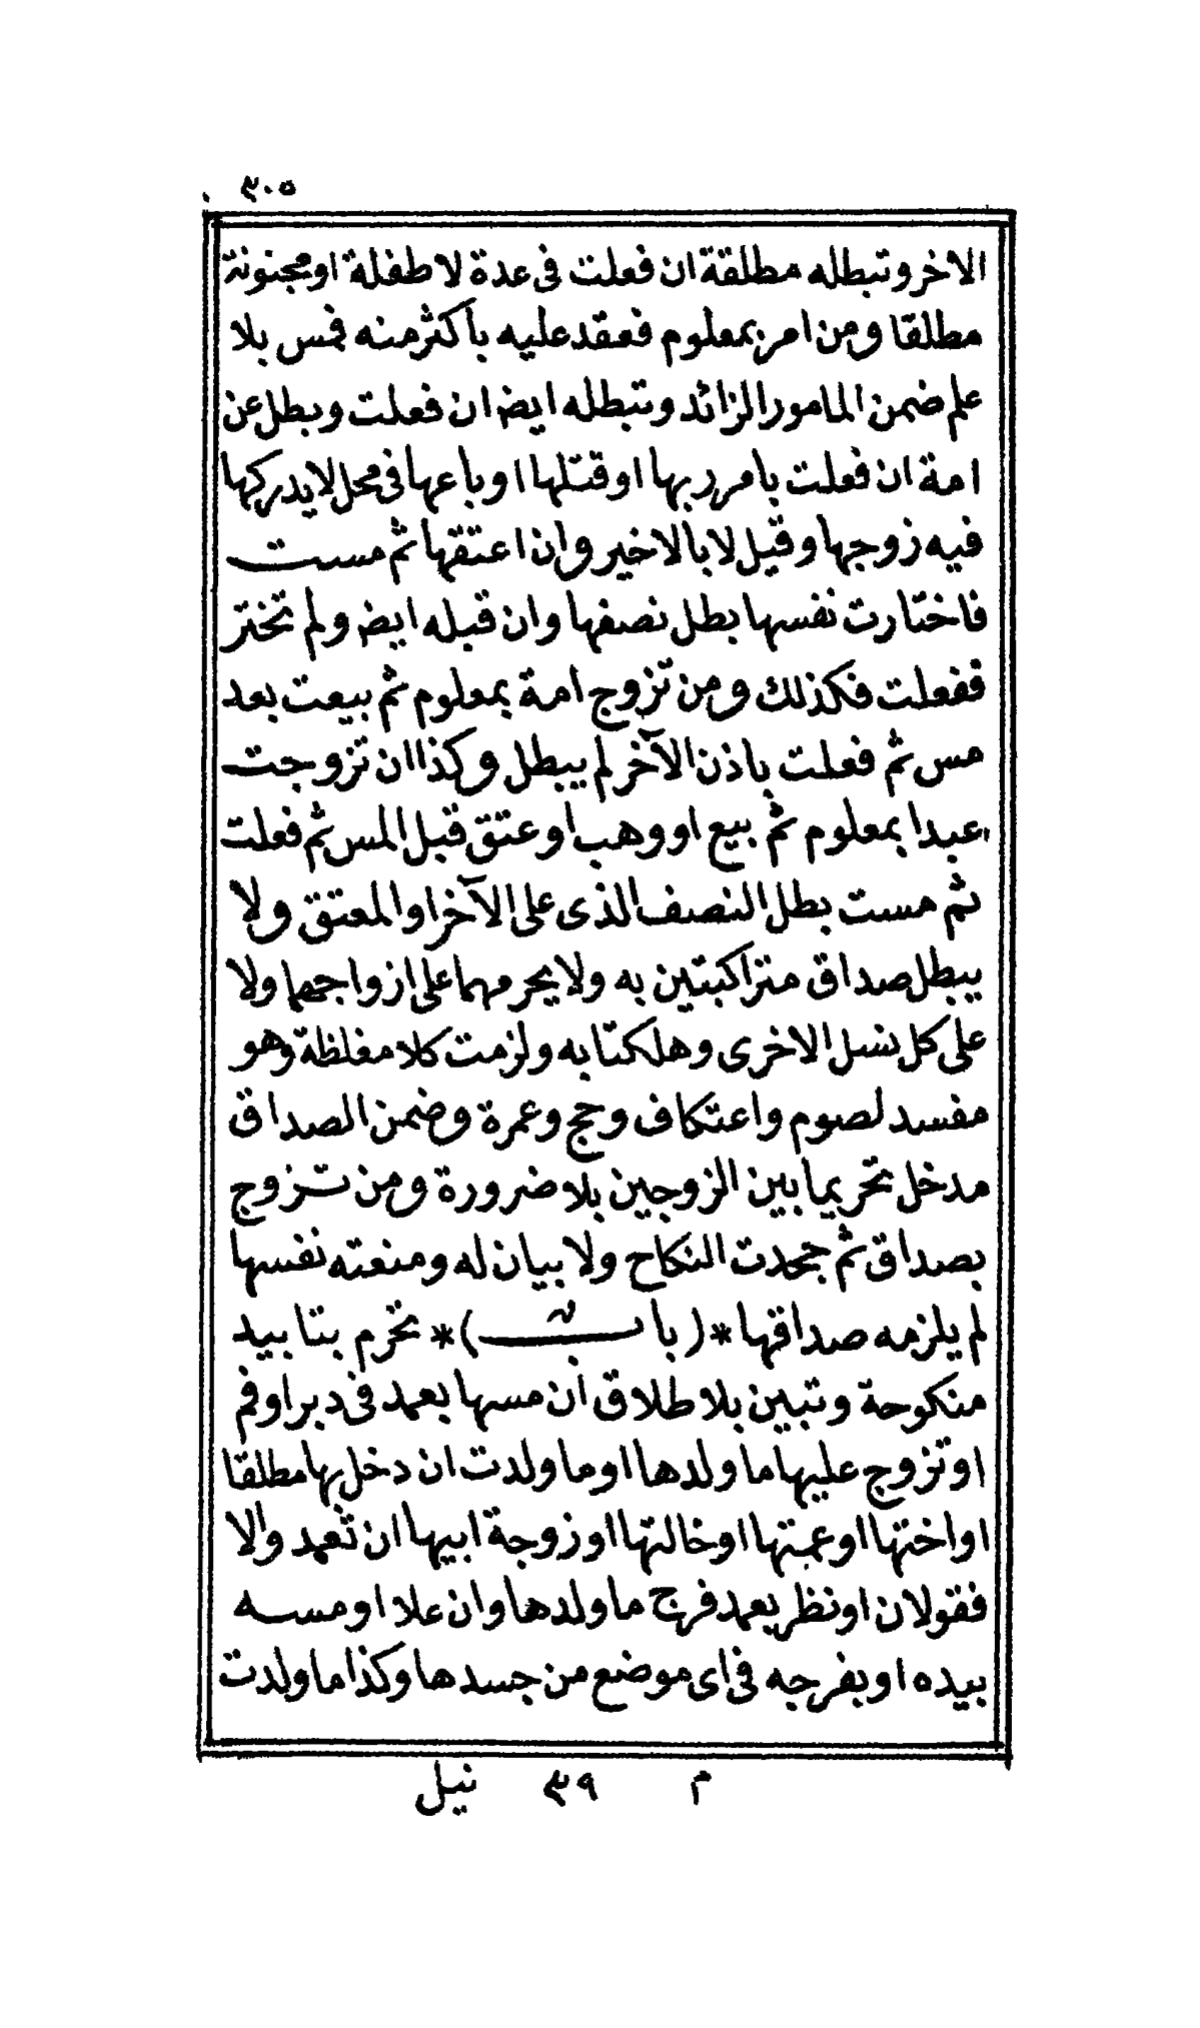 ٣٠٥
الاخر وتبطله مطلقة ان فعلت فى عدة لا طفلة او مجنونة
مطلقا ومن امر بمعلوم فعقد عليه باكثر منه فمس بلا
علم ضمن المامور الزائد وتبطله ايضا ان فعلت وبطل عن
امة ان فعلت بامر ربها او قتلها او باعها فى محل لا يدركها
فيه زوجها وقيل لا بالاخير وان اعتقها ثم مست
فاختارت نفسها بطل نصفها وان قبله ايضا ولم تختر
ففعلت فكذلك ومن تزوج امة بمعلوم ثم بيعت بعد
مس ثم فعلت باذن الآخر لم يبطل وكذا ان تزوجت
عبدا بمعلوم ثم بيع او وهب او عتق قبل المس ثم فعلت
ثم مست بطل النصف الذى على الآخر او المعتق ولا
يبطل صداق متراكبتين به ولا يحرمهما على ازواجهما ولا
على كل نسل الاخرى وهلكتا به ولزمت كلا مغلظة وهو
مفسد لصوم واعتكاف وحج وعمرة وضمن الصداق
مدخل تحريما بين الزوجين بلا ضرورة ومن تزوج
بصداق ثم جحدت النكاح ولا بيان له ومنعته نفسها
لم يلزمه صداقها *( باب )* تحرم بتابيد
منكوحة وتبين بلا طلاق ان مسها بعمد فى دبر او فم
او تزوج عليها ما ولدها او ما ولدت ان دخل بها مطلقا
او اختها او عمتها او خالتها او زوجة ابيها ان تعمد والا
فقولان او نظر بعمد فرج ما ولدها وان علا او مسه
بيده او بفرجه فى اى موضع من جسدها وكذا ما ولدت
م ٣٩ نيل